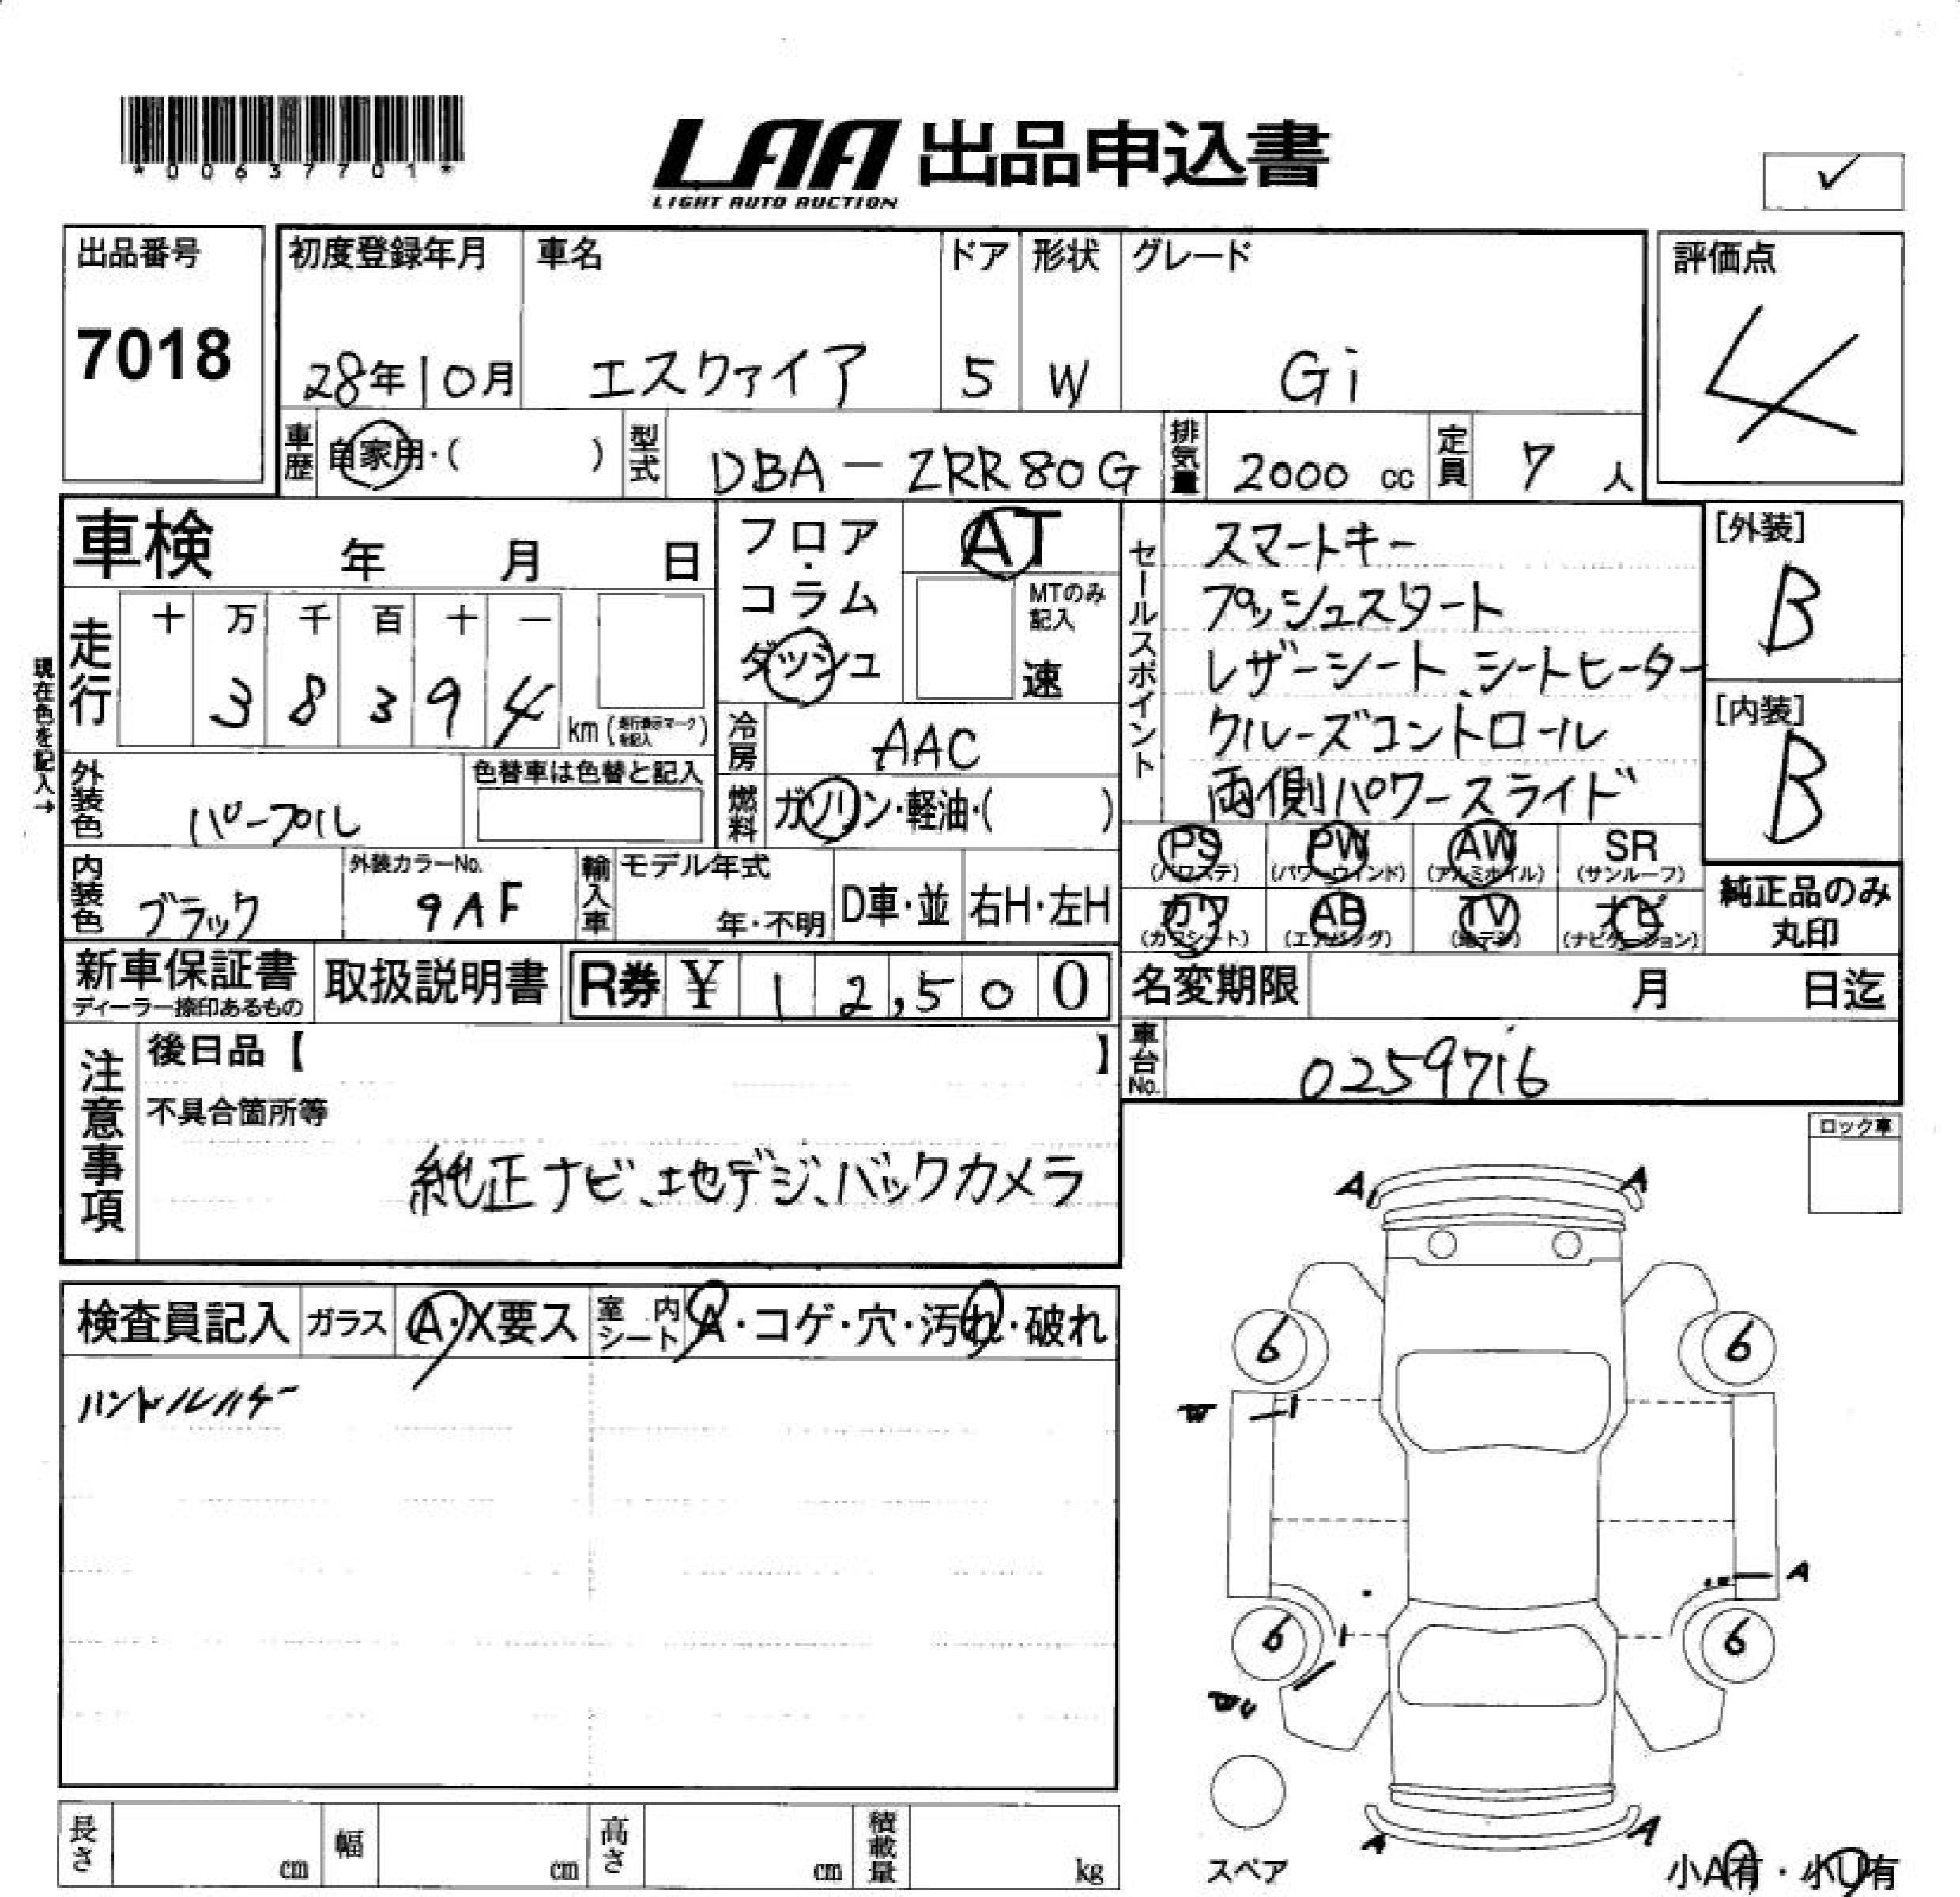 *00637701*
LAA 出品申込書
LIGHT AUTO AUCTION
✓
出品番号
7018
初度登録年月
28年10月
車名
エスクァイア
ドア
5
形状
W
グレード
Gi
評価点
4
車歴
自家用・( )
型式
DBA－ZRR80G
排気量
2000 cc
定員
7 人
車検 年 月 日
現在色を記入→
走行
十 万 千 百 十 一
3 8 3 9 4
km (走行表示マークを記入)
外装色
パープル
色替車は色替と記入
内装色
ブラック
外装カラーNo.
9AF
フロア・コラム
ダッシュ
AT
MTのみ記入
速
冷房
AAC
燃料
ガソリン・軽油・( )
輸入車
モデル年式
年・不明
D車・並
右H・左H
セールスポイント
スマートキー
プッシュスタート
レザーシート、シートヒーター
クルーズコントロール
両側パワースライド
[外装]
B
[内装]
B
PS (パワステ)
PW (パワーウインド)
AW (アルミホイル)
SR (サンルーフ)
カワ (カワシート)
AB (エアバッグ)
TV (地デジ)
ナビ (ナビゲーション)
純正品のみ
丸印
新車保証書
ディーラー捺印あるもの
取扱説明書
R券 ¥ 12,500
名変期限 月 日迄
車台No.
0259716
注意事項
後日品【 】
不具合箇所等
純正ナビ、地デジ、バックカメラ
ロック車
検査員記入
ガラス
A・X要ス
室内シート
A・コゲ・穴・汚れ・破れ
ハンドルハゲ
A A
6 6
W
A
6 6
A A
スペア
小A有・小U有
長さ cm
幅 cm
高さ cm
積載量 kg